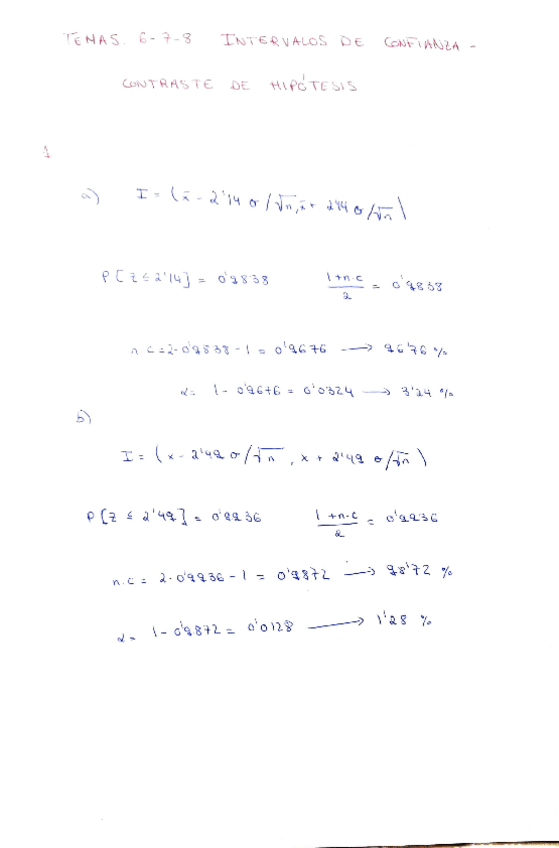 TEMAS. 6-7-8 INTERVALOS DE CONFIANZA -
CONTRASTE DE HIPÓTESIS
1
a) I = (x̄ - 2'14 σ/√n, x̄ + 2'14 σ/√n)
P[Z ≤ 2'14] = 0'9838 (1+n.c)/2 = 0'9838
n c = 2·0'9838 - 1 = 0'9676 → 96'76 %
α = 1 - 0'9676 = 0'0324 → 3'24 %
b)
I = (x - 2'49 σ/√n, x + 2'49 σ/√n)
P[Z ≤ 2'49] = 0'9936 (1+n.c)/2 = 0'9936
n.c = 2·0'9936 - 1 = 0'9872 → 98'72 %
α = 1 - 0'9872 = 0'0128 → 1'28 %